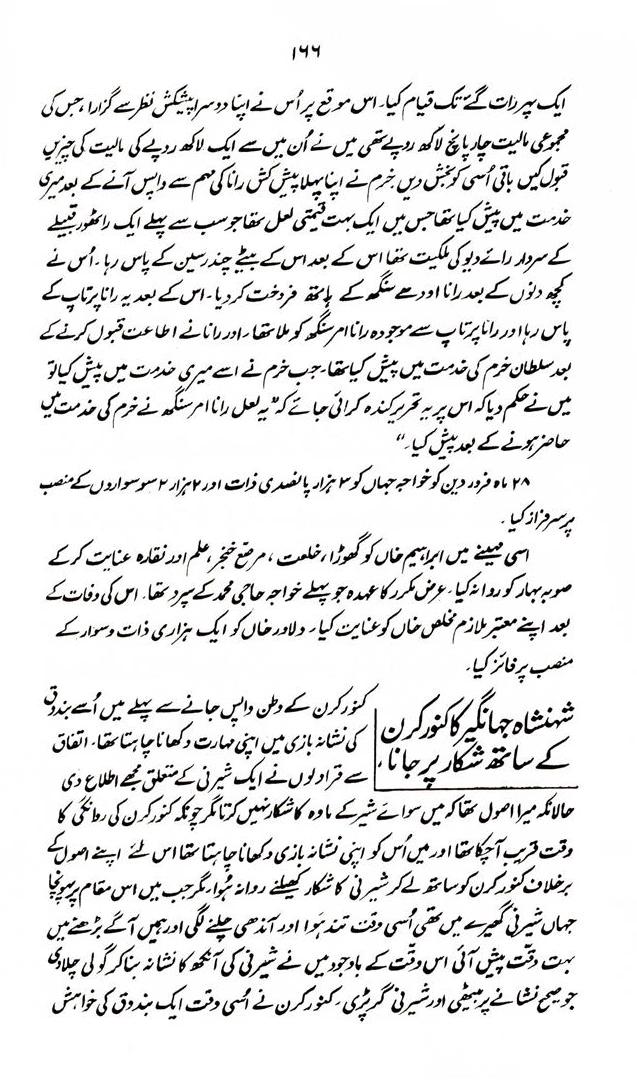 ۱۶۶
ایک پہر رات گئے تک قیام کیا۔ اس موقع پر اُس نے اپنا دوسرا پیشکش نظر سے گزارا، جس کی
مجموعی مالیت چار پانچ لاکھ روپے تھی میں نے اُن میں سے ایک لاکھ روپے کی مالیت کی چیزیں
قبول کیں باقی اُسی کو بخش دیں خرم نے اپنا پہلا پیش کش رانا کی مہم سے واپس آنے کے بعد میری
خدمت میں پیش کیا تھا جس میں ایک بہت قیمتی لعل تھا جو سب سے پہلے ایک راٹھور قبیلے
کے سردار رائے دیو کی ملکیت تھا اس کے بعد اس کے بیٹے چندر سین کے پاس رہا۔ اُس نے
کچھ دنوں کے بعد رانا اودھے سنگھ کے ہاتھ فروخت کر دیا۔ اس کے بعد یہ رانا پرتاپ کے
پاس رہا اور رانا پرتاپ سے موجودہ رانا امر سنگھ کو ملا تھا۔ اور رانا نے اطاعت قبول کرنے کے
بعد سلطان خرم کی خدمت میں پیش کیا تھا۔ جب خرم نے اسے میری خدمت میں پیش کیا تو
میں نے حکم دیا کہ اس پر یہ تحریر کندہ کرائی جائے کہ ”یہ لعل رانا امر سنگھ نے خرم کی خدمت میں
حاضر ہونے کے بعد پیش کیا۔“
۲۸ ماہ فروردین کو خواجہ جہاں کو ۳ ہزار پانصدی ذات اور ۲ ہزار ۲ سو سواروں کے منصب
پر سرفراز کیا۔
اسی مہینے میں ابراہیم خاں کو گھوڑا، خلعت، مرصّع خنجر، علم اور نقارہ عنایت کر کے
صوبہ بہار کو روانہ کیا۔ عرض مکرر کا عہدہ جو پہلے خواجہ حاجی محمد کے سپرد تھا۔ اس کی وفات کے
بعد اپنے معتبر ملازم مخلص خاں کو عنایت کیا۔ دلاور خاں کو ایک ہزاری ذات و سوار کے
منصب پر فائز کیا۔
شہنشاہ جہانگیر کا کنور کرن
کے ساتھ شکار پر جانا،
کنور کرن کے وطن واپس جانے سے پہلے میں اُسے بندوق
کی نشانہ بازی میں اپنی مہارت دکھانا چاہتا تھا۔ اتفاق
سے قراولوں نے ایک شیرنی کے متعلق مجھے اطلاع دی
حالانکہ میرا اصول تھا کہ میں سوائے شیر کے مادہ کا شکار نہیں کرتا مگر چونکہ کنور کرن کی روانگی کا
وقت قریب آچکا تھا اور میں اُس کو اپنی نشانہ بازی دکھانا چاہتا تھا اس لئے اپنے اصول کے
برخلاف کنور کرن کو ساتھ لے کر شیرنی کا شکار کھیلنے روانہ ہُوا، مگر جب میں اس مقام پر پہونچا
جہاں شیرنی گھیرے میں تھی اُسی وقت تند ہوا اور آندھی چلنے لگی اور ہمیں آگے بڑھنے میں
بہت دقّت پیش آئی اس وقت کے باوجود میں نے شیرنی کی آنکھ کا نشانہ بنا کر گولی چلا دی
جو صحیح نشانے پر بیٹھی اور شیرنی گر پڑی۔ کنور کرن نے اُسی وقت ایک بندوق کی خواہش